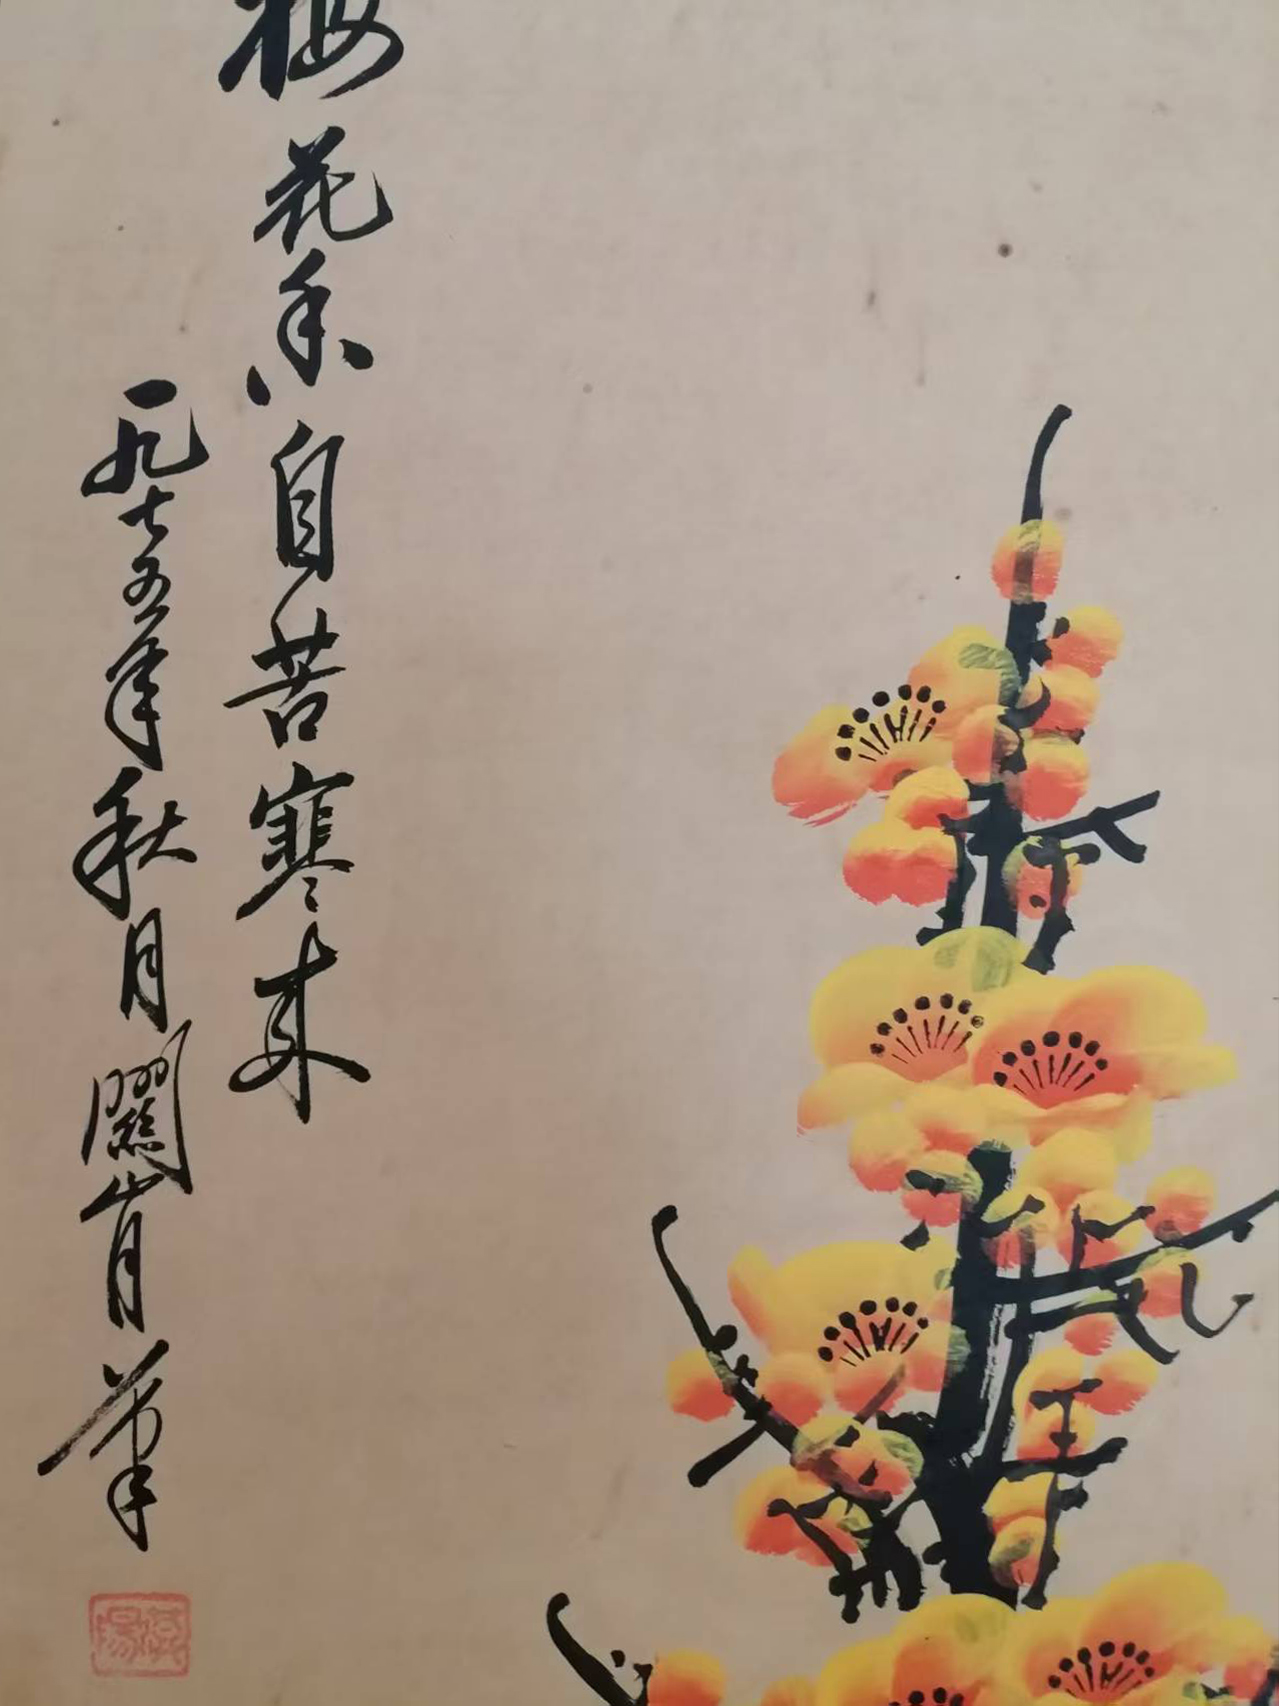 梅花香自苦寒来
一九七五年秋月關山月筆